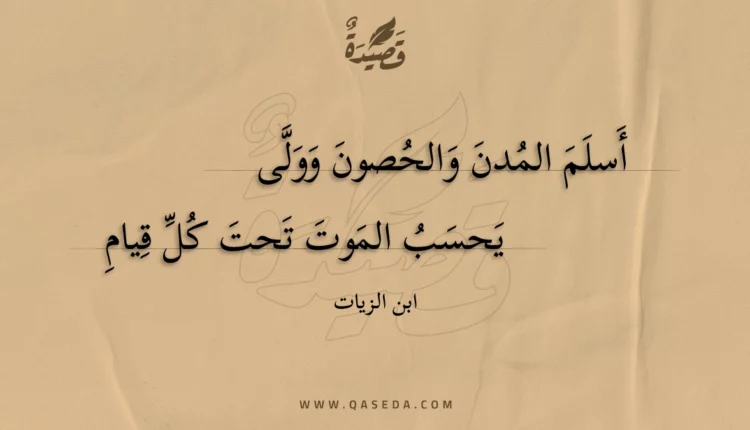 قَصِيْدَةٌ
أَسلَمَ المُدنَ وَالحُصونَ وَوَلَّى
يَحسَبُ المَوتَ تَحتَ كُلِّ قِيامِ
ابن الزيات
WWW.QASEDA.COM